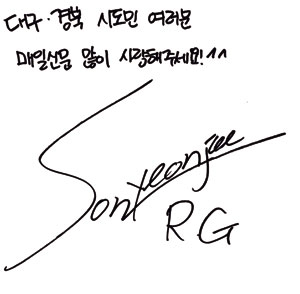 대구·경북 시도민 여러분
매일신문 많이 사랑해주세요!^^
Sonyeonjae
RG